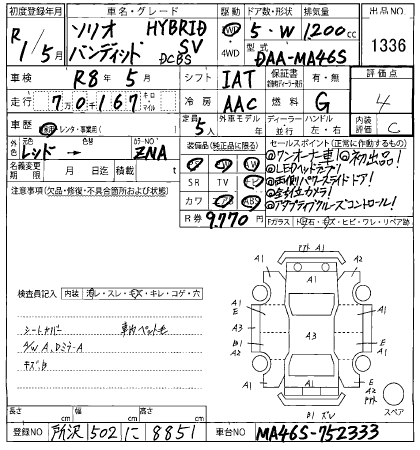 初度登録年月 車名・グレード 駆動 ドア数・形状 排気量 出品NO
R1/5月 ソリオ バンディット HYBRID SV DCBS 2WD 4WD 5・W 1200cc 1336
型式 DAA-MA46S
車検 R8年5月 シフト IAT 保証書 有・無 評価点 4
走行 70167 キロ マイル 冷房 AAC 燃料 G
車歴 自家 レンタ・事業用( ) 定員 5人 外車モデル 年 ディーラー 並行 ハンドル 左・右 内装評価 C
外色 元色 レッド → 色替 カラーNO ZNA 装備品(純正品に限る) セールスポイント(正常に作動するもの)
名義変更期限 月 日迄 積載 t SR TV
◎ワンオーナー車!◎初出品!
◎LEDヘッドランプ!
◎両側パワースライドドア!
◎全周囲カメラ!
◎アダプティブクルーズコントロール!
注意事項(欠品・修復・不具合箇所および状態) カワ ABS
R券 9,770円 Fガラス
A1 A1 A2
検査員記入 内装 汚レ・スレ・キズ・キレ・コゲ・穴
シートカバー 車内ペット毛
A/W A、DミラーA
キズ、凹
A1 E A3 B1 A2 A3 A1 E A1 E A2
B1 ズレ スペア
長さ cm 幅 cm 高さ cm
登録NO 所沢 502 に 8851 車台NO MA46S-752333